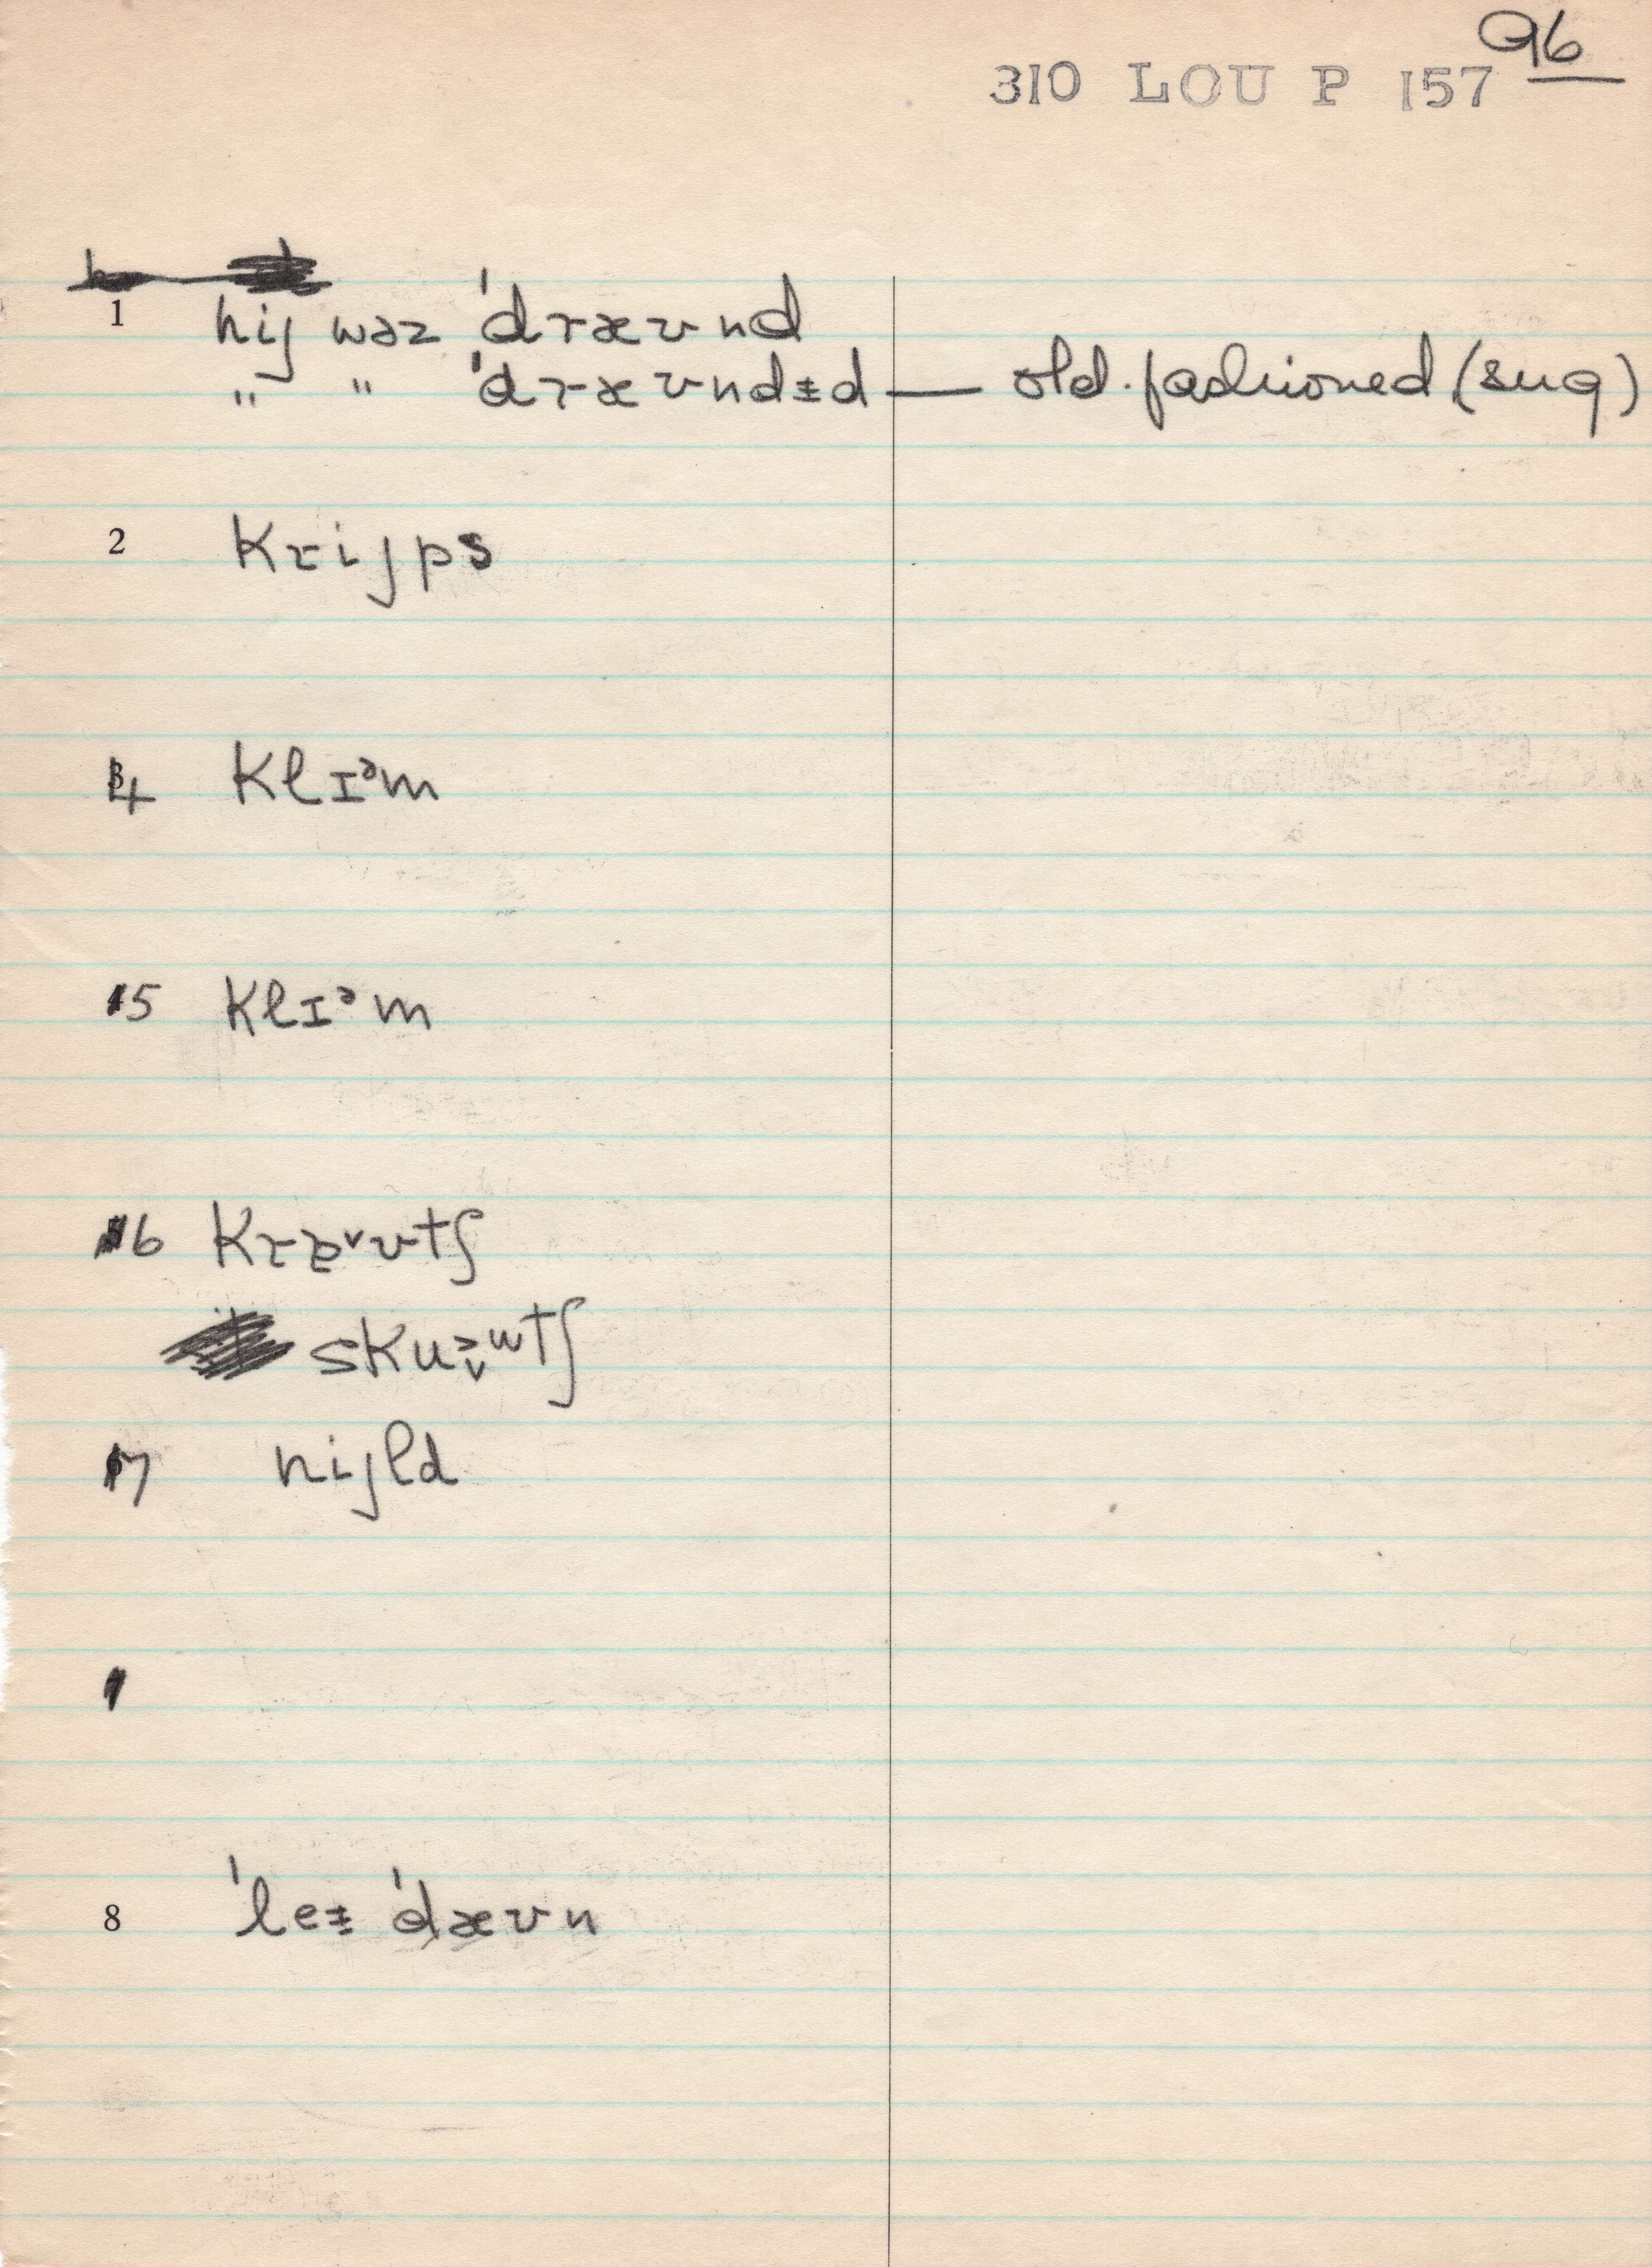 96
310 LOU P 157
1 hij wəz 'dræʊnd
" " 'dræʊndɨd — old-fashioned (sug)
2 krijps
4 klɪᵊm
5 klɪᵊm
6 krɐ˅ʊtʃ
skuɜ̬ʷtʃ
7 nijld
8 'leɨ 'dæʊn